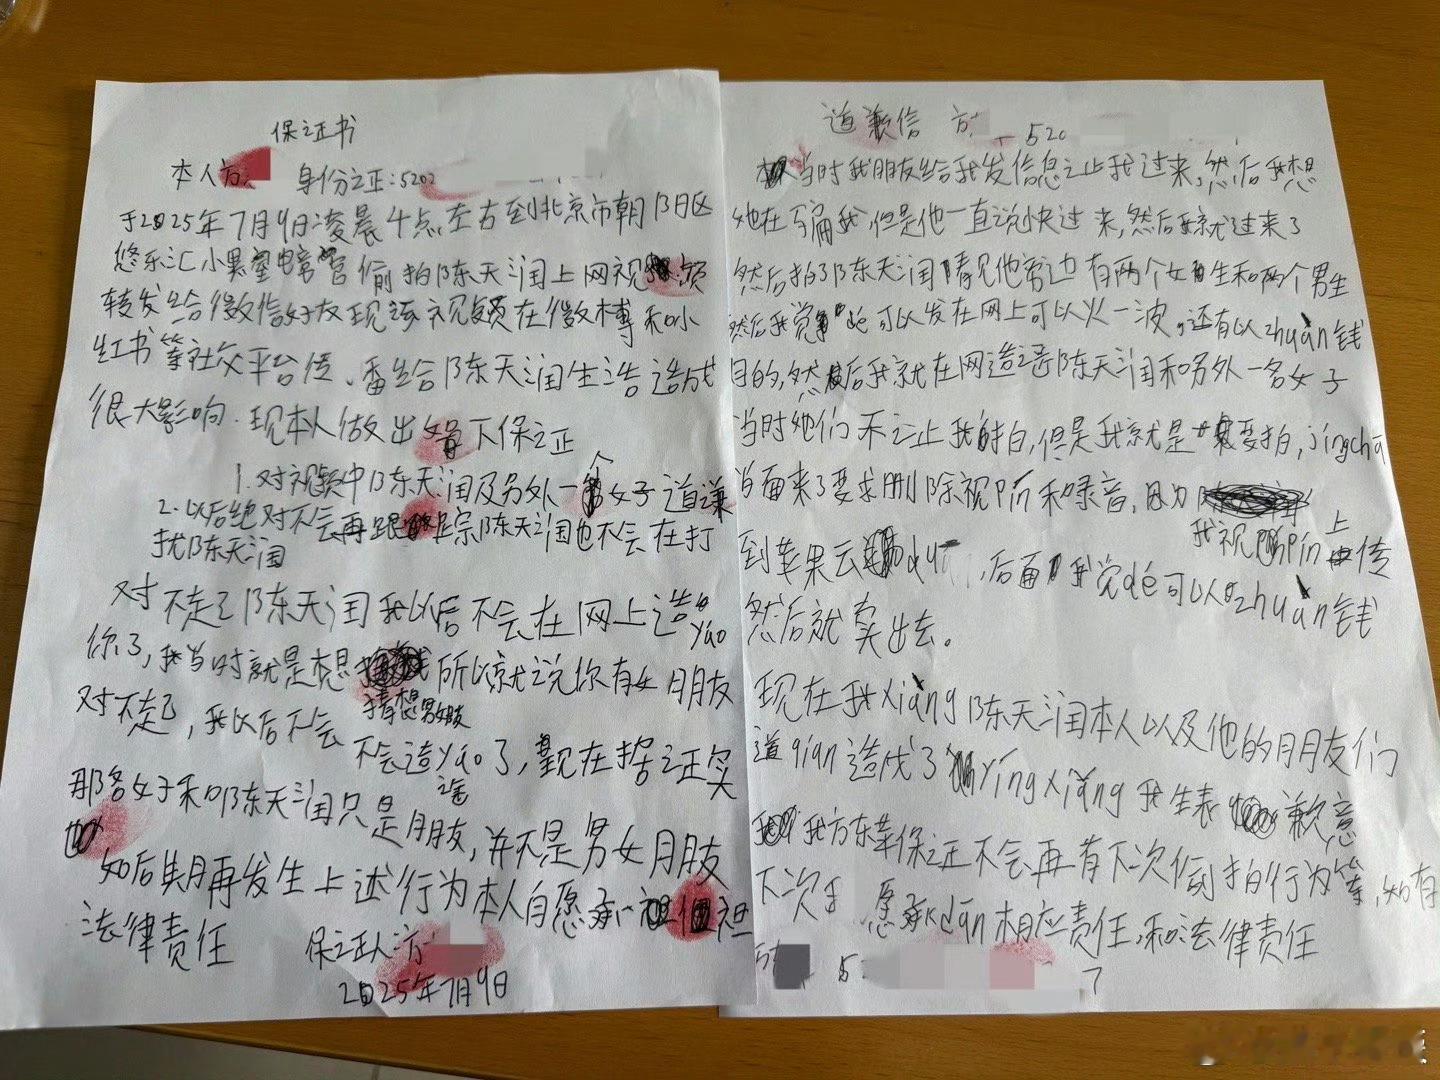 保证书
本人方 身份证:5202
于2025年7月9日凌晨4点左右到北京市朝阳区
悠乐汇小黑萤 偷拍陈天润上网视频
转发给微信好友现该视频在微博和小
红书等社交平台传播给陈天润生活造成
很大影响.现本人做出如下保证
1.对视频中陈天润及另外一个女子道谦
2.以后绝对不会再跟踪陈天润也不会在打
扰陈天润
对不起陈天润我以后不会在网上造yáo
你了,我当时就是想 所以就说你有女朋友
猜想男女友
对不起,我以后不会 不会造yáo了,现在据证实
那名女子和陈天润只是朋友,并不是男女朋友
如后期再发生上述行为本人自愿承担
法律责任 保证人:方
2025年7月9日
道歉信 方 520
当时我朋友给我发信息让我过来,然后我想
她在骗我,但是他一直说快过来,然后我就过来了
然后拍了陈天润看见他旁边有两个女生和两个男生
然后我觉dé可以发在网上可以火一波,还有以zhuàn钱
目的,然后我就在网造谣陈天润和另外一名女子
当时她们不让我拍,但是我就是要拍,jǐngchá
当面来了要求删除视pín和录音,因为
我视pín上传
到苹果云 ,后面我觉dé可以zhuàn钱
然后就卖出去。
现在我xiàng陈天润本人以及他的朋友们
道qiàn造成了yǐngxiǎng我表歉意
我方东 保证不会再有下次偷拍行为等,如有
下次 愿承dān相应责任,和法律责任
方 5 7